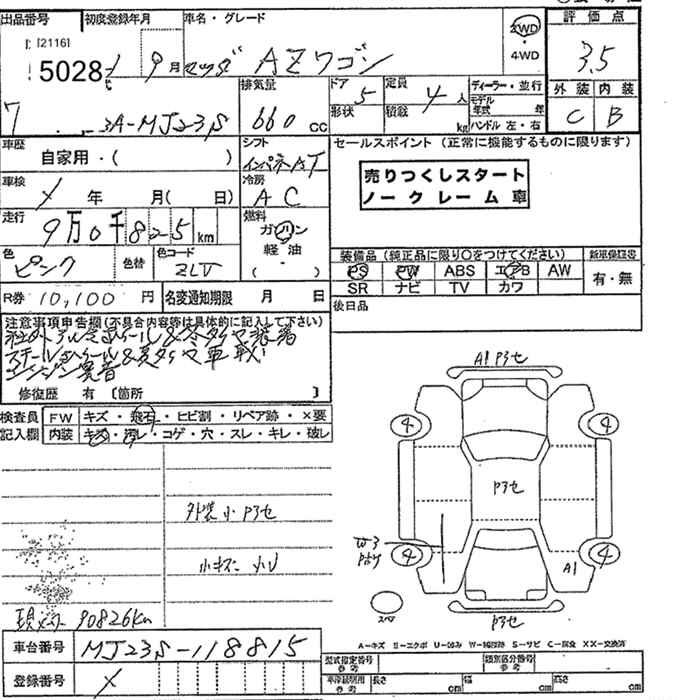 出品番号 初度登録年月 車名・グレード 2WD 評価点
[2116] ・4WD 3.5
5028 9月 マツダ AZワゴン
排気量 ドア 5 定員 4人 ディーラー・並行 外装 内装
形状 積載 kg モデル年式 年 C B
7 3A-MJ23S 660 cc ハンドル 左・右
車歴 シフト セールスポイント(正常に機能するものに限ります)
自家用・( ) インパネAT
車検 メ 年 月( 日) 冷房 AC 売りつくしスタート
ノークレーム車
走行 9万0千825km 燃料 ガソリン
軽油
・( )
色 ピンク 色替 色コード ZLV 装備品(純正品に限り○をつけてください) 新車保証書
PS PW ABS エアB AW 有・無
R券 10,100円 名変通知期限 月 日 SR ナビ TV カワ
後日品
注意事項申告欄(不具合内容等は具体的に記入して下さい)
社外アルミホイール&冬タイヤ装着
スチールホイール&夏タイヤ車載
エンジン異音
修復歴 有 〔箇所 〕 A1 P3セ
検査員 FW キズ・飛石・ヒビ割・リペア跡・×要
記入欄 内装 キズ・汚レ・コゲ・穴・スレ・キレ・破レ
4 4
外装小P3セ P3セ
小キズ 小U W3
4 4
A1
スペア
現メーター 90826km P3セ
車台番号 MJ23S-118815 A-キズ B-エクボ U-凹み W-補修跡 S-サビ C-腐食 XX-交換済
登録番号 メ 型式指定番号 参考 類別区分番号 参考
長さ cm 幅 cm 高さ cm